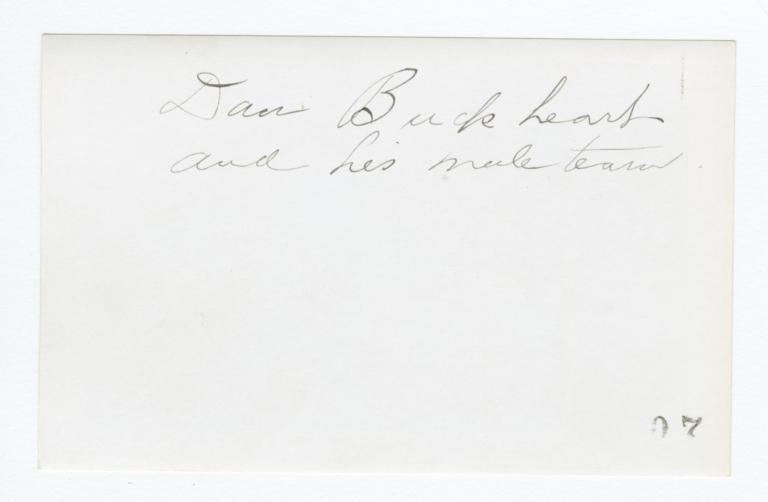 Dan Buckheart
and his mule team.
07